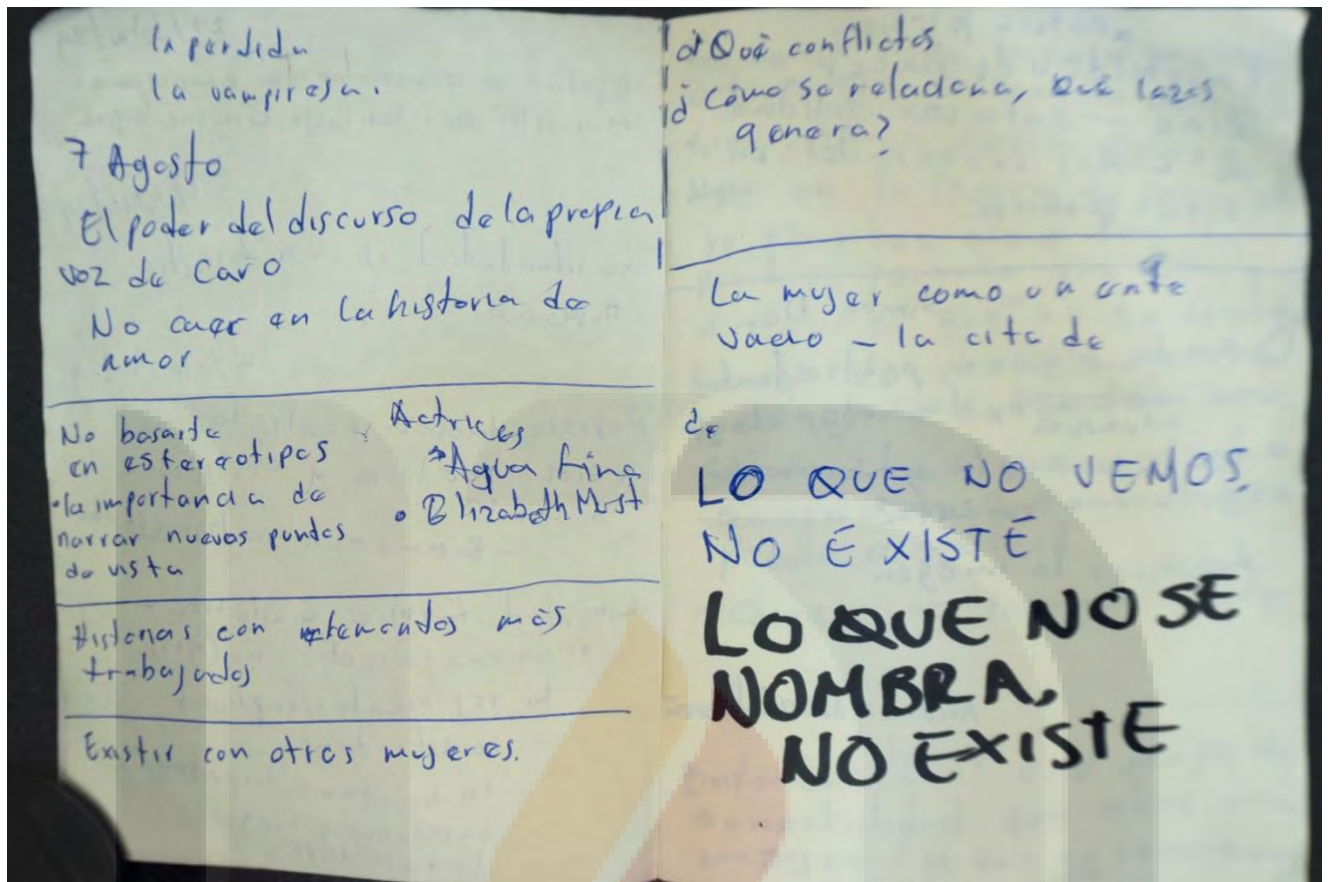 la perdida
la vampiresa.
7 Agosto
El poder del discurso de la propia
voz de Caro
No caer en la historia de
amor
No basarte
en estereotipos
• la importancia de
narrar nuevos puntos
de vista
Actrices
Agua fina
• Elizabeth
Historias con más
trabajados
Existir con otras mujeres.
¿Qué conflictos
¿Cómo se relaciona, que lazos
genera?
La mujer como un ente
vacio - la cita de
de
LO QUE NO VEMOS,
NO EXISTE
LO QUE NO SE
NOMBRA,
NO EXISTE